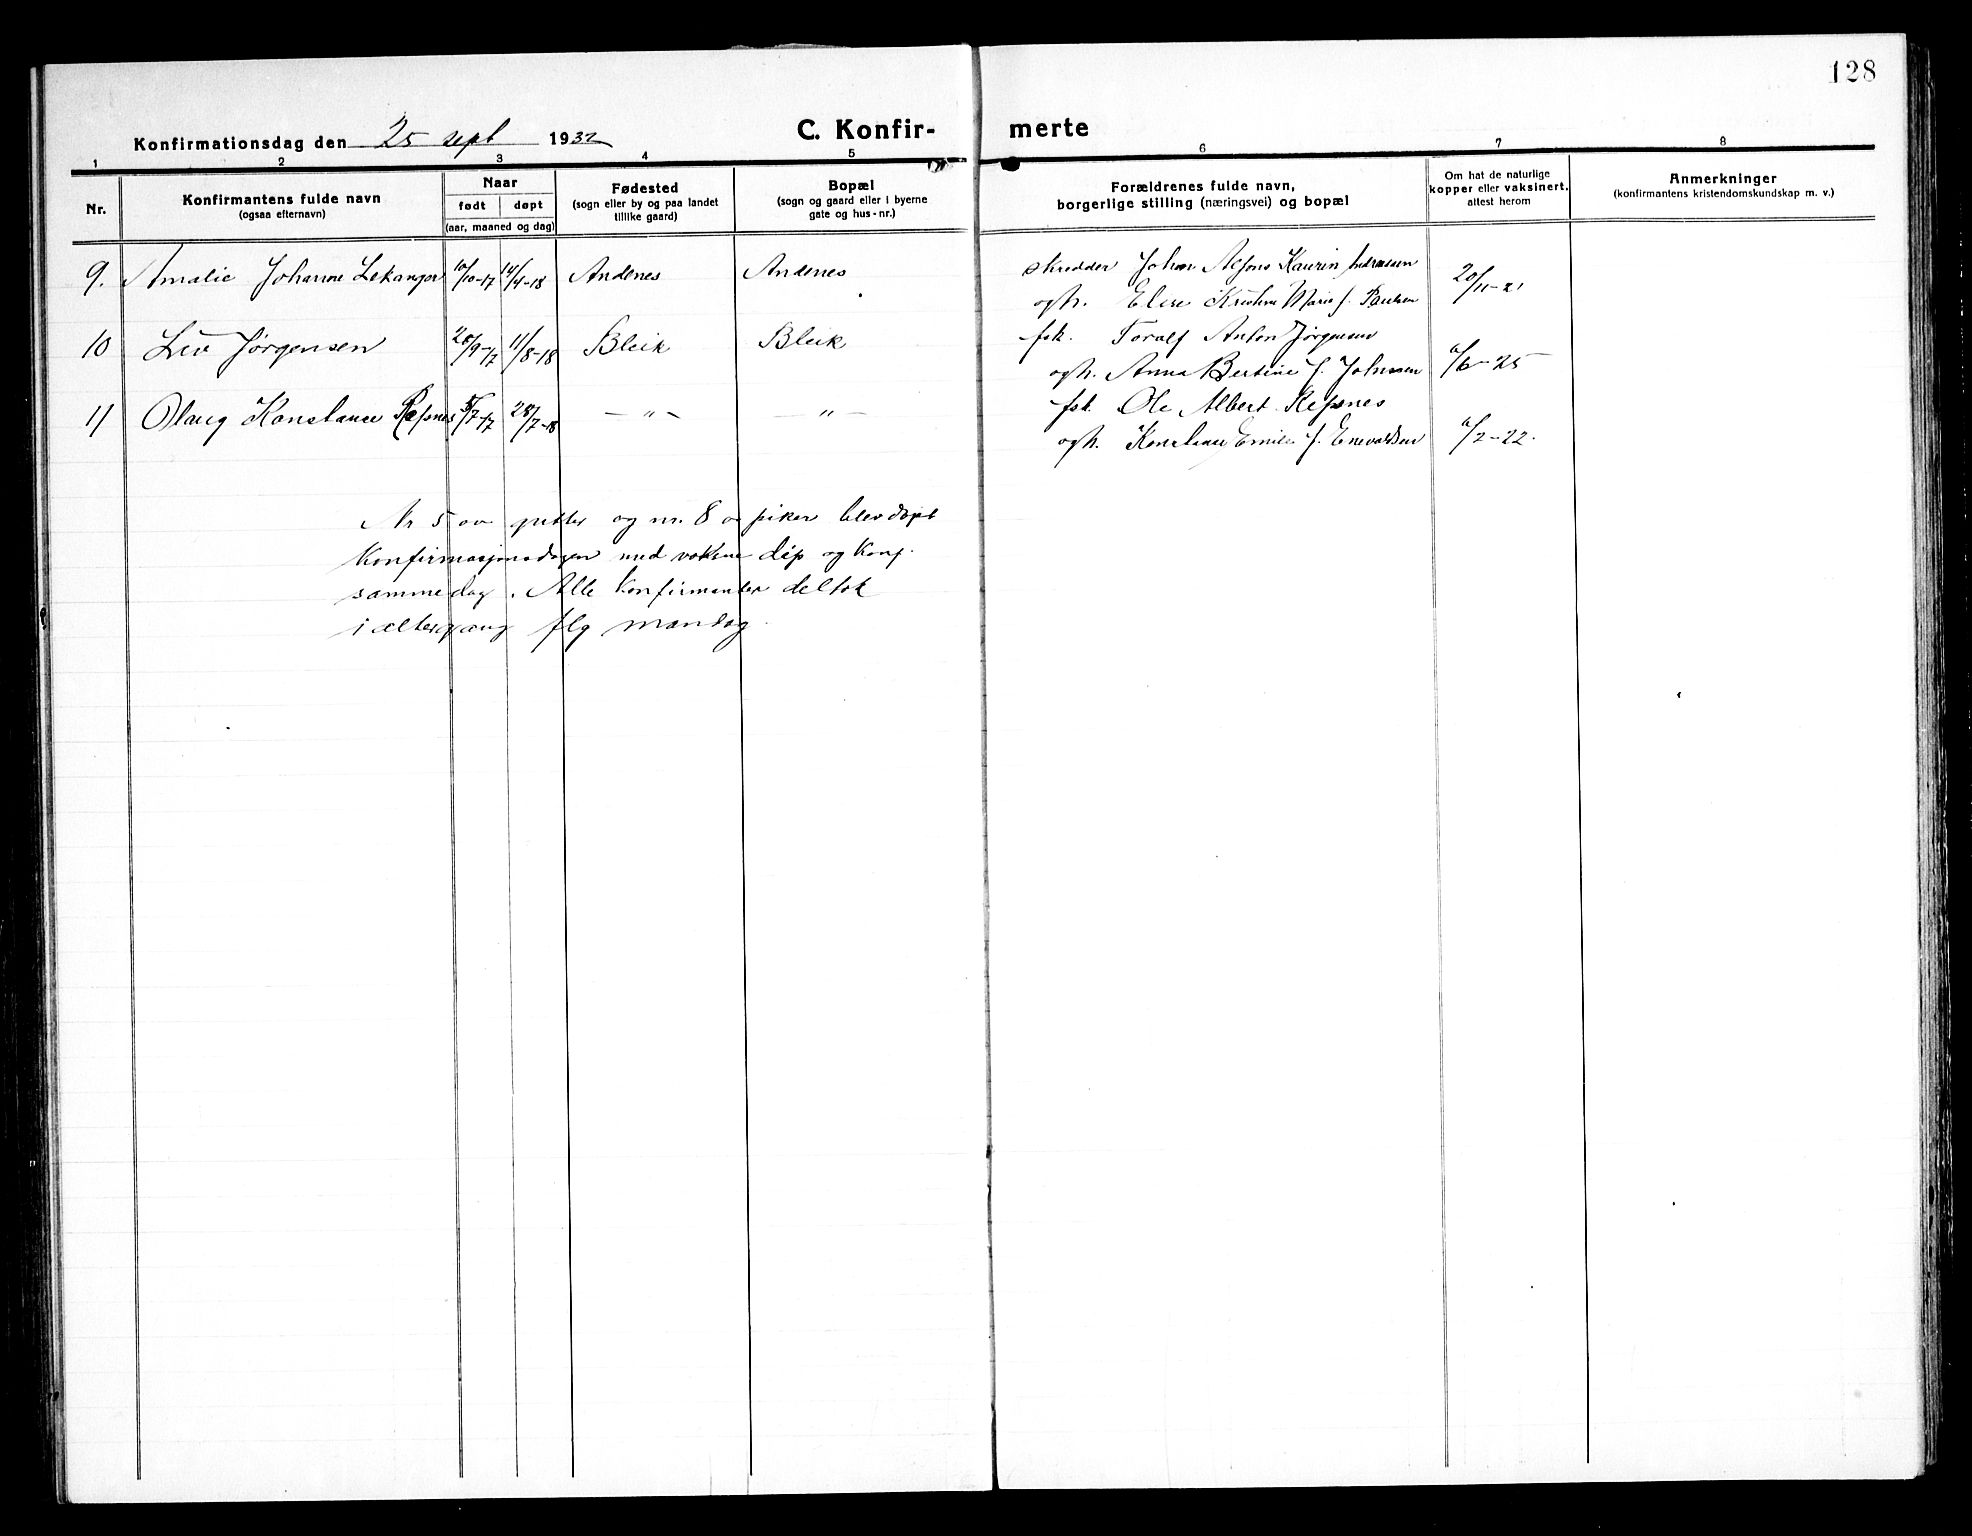 128
Konfirmationsdag den 25 sept 1932
C. Konfir-merte
1 2 3 4 5 6 7 8
Nr.
Konfirmantens fulde navn
(ogsaa efternavn)
Naar
født døpt
(aar, maaned og dag)
Fødested
(sogn eller by og paa landet
tillike gaard)
Bopæl
(sogn og gaard eller i byerne
gate og hus-nr.)
Forældrenes fulde navn,
borgerlige stilling (næringsvei) og bopæl
Om hat de naturlige
kopper eller vaksinert,
attest herom
Anmerkninger
(konfirmantens kristendomskundskap m. v.)
9. Amalie Johanne Lekanger 10/10-17 14/4-18 Andenes Andenes skredder Johan Alfons Kaurin Andreassen
ogh. Elise Kristine Marie f. Paulsen 20/11-21
10 Liv Jørgensen 28/9-17 11/8-18 Bleik Bleik fsk. Toralf Anton Jørgensen
ogh. Anna Bertine f. Johnsen /6-25
11 Olaug Konstanse Refsnes 5/7-17 28/7-18 —"— —"— fsk. Ole Albert Refsnes
ogh. Konstanse Emilie f. Enevoldsen /2-22.
Nr 5 av gutter og nr. 8 av piker blev døpt
Konfirmasjonsdagen med voksne dåp og Konf.
samme dag. Alle konfirmanter deltok
i altergang flg mandag.